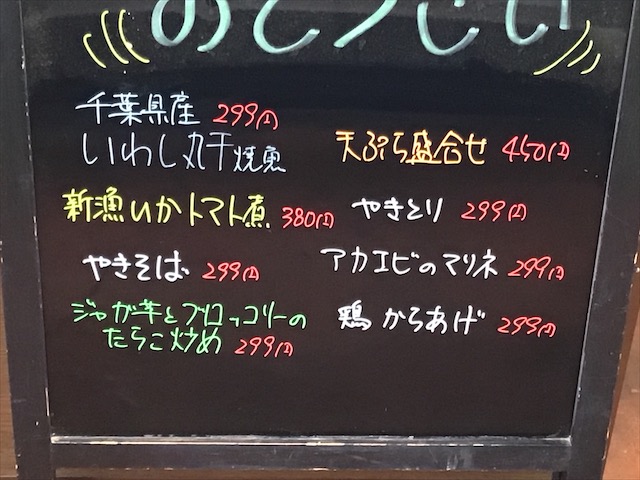 おとうしい
千葉県産 299円
いわし丸干焼魚
天ぷら盛合せ 450円
新漁いかトマト煮 380円
やきとり 299円
やきそば 299円
アカエビのマリネ 299円
ジャガ芋とブロッコリーの
たらこ炒め 299円
鶏からあげ 299円